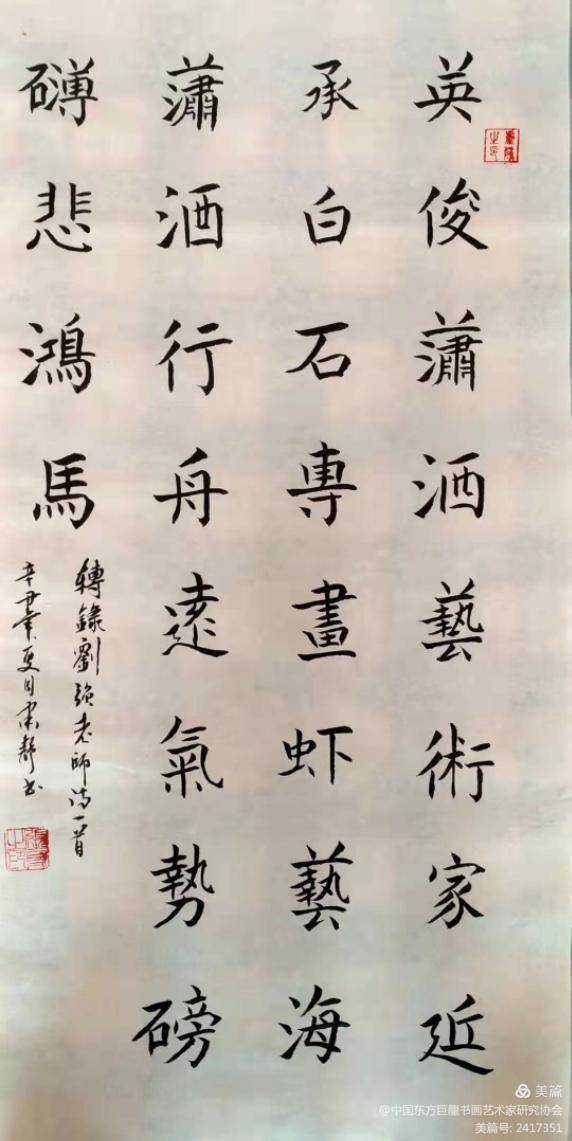 英俊瀟洒藝術家近
承白石專畫虾藝海
瀟洒行舟遠氣勢磅
礴悲鴻馬
轉錄劉强老師詩一首
辛丑年夏月書
美篇
@中国东方巨龍书画艺术家研究协会
美篇号: 2417351